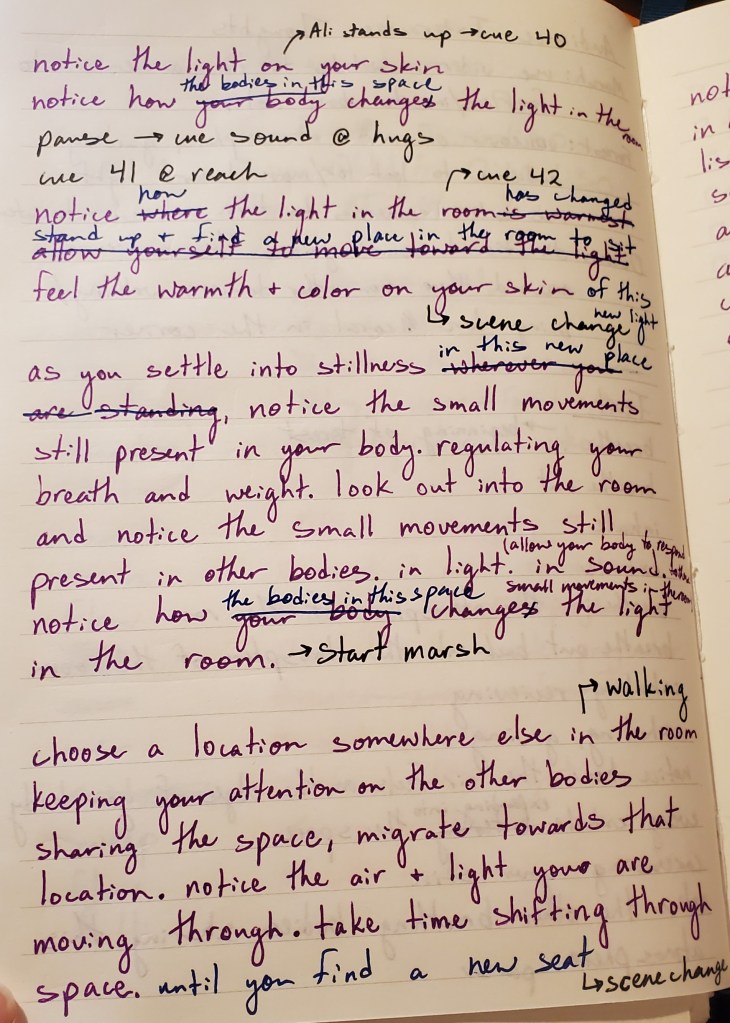 Ali stands up → cue 40
notice the light on your skin
the bodies in this space
notice how your body changes the light in the room
pause → cue sound @ hugs
cue 41 @ reach
cue 42
how
has changed
notice where the light in the room is warmest
stand up + find a new place in the room to sit
allow yourself to move toward the light
feel the warmth + color on your skin of this
new light
↳ scene change
in this new place
as you settle into stillness wherever you
are standing, notice the small movements
still present in your body. regulating your
breath and weight. look out into the room
and notice the small movements still
(allow your body to respond
present in other bodies. in light. in sound. to the
small movements in the room
the bodies in this space
notice how your body changes the light
in the room. → start marsh
walking
choose a location somewhere else in the room
keeping your attention on the other bodies
sharing the space, migrate towards that
location. notice the air + light you are
moving through. take time shifting through
space. until you find a new seat
↳ scene change
not
in
lis
s
a